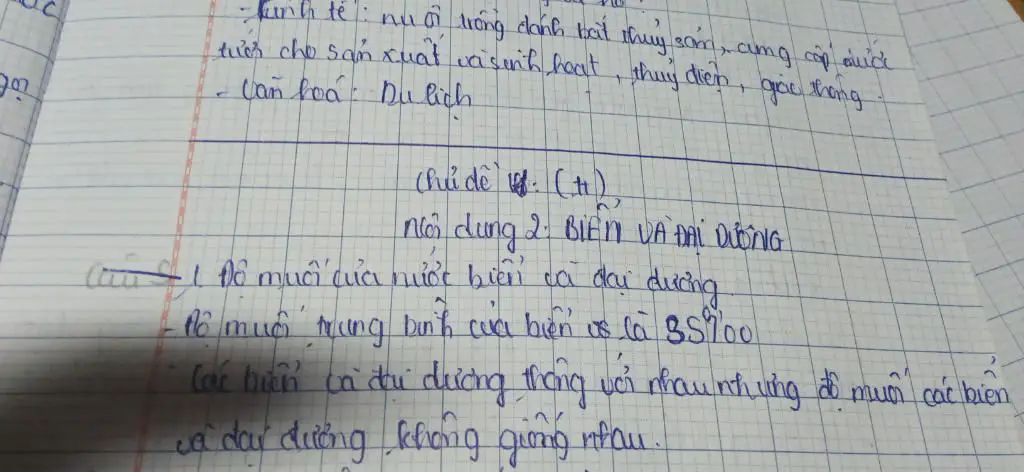 - Kinh tế: nuôi trồng đánh bắt thuỷ sản, cung cấp nước
tưới cho sản xuất và sinh hoạt, thuỷ điện, giao thông
- Văn hoá: Du lịch
Chủ đề : (tt)
Nội dung 2: BIỂN VÀ ĐẠI DƯƠNG
1 Độ muối của nước biển và đại dương
- Độ muối trung bình của biển là 35%00
- Các biển và đại dương thông với nhau nhưng độ muối các biển
và đại dương không giống nhau.